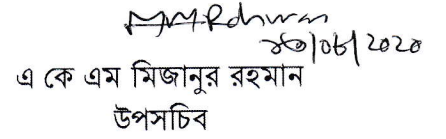 /06/2020
এ কে এম মিজানুর রহমান
উপসচিব